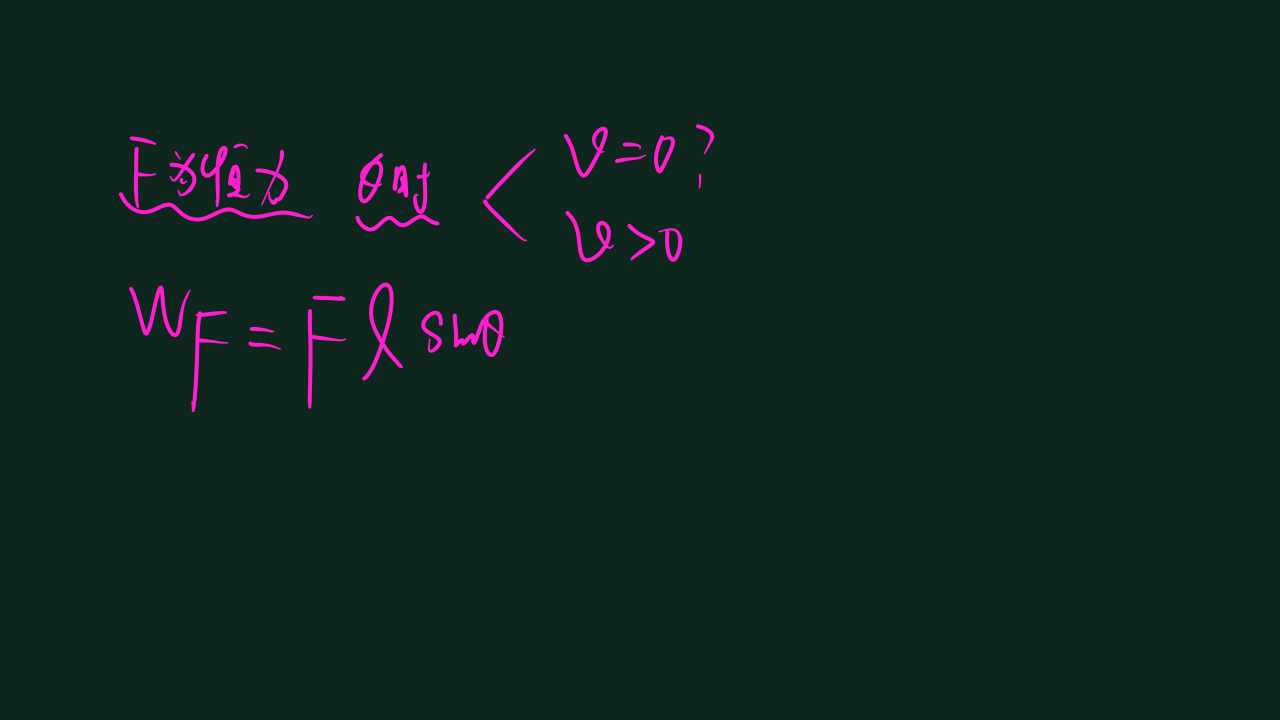 F为恒力 θ时 < v=0?
v>0
W_F = Fl sinθ